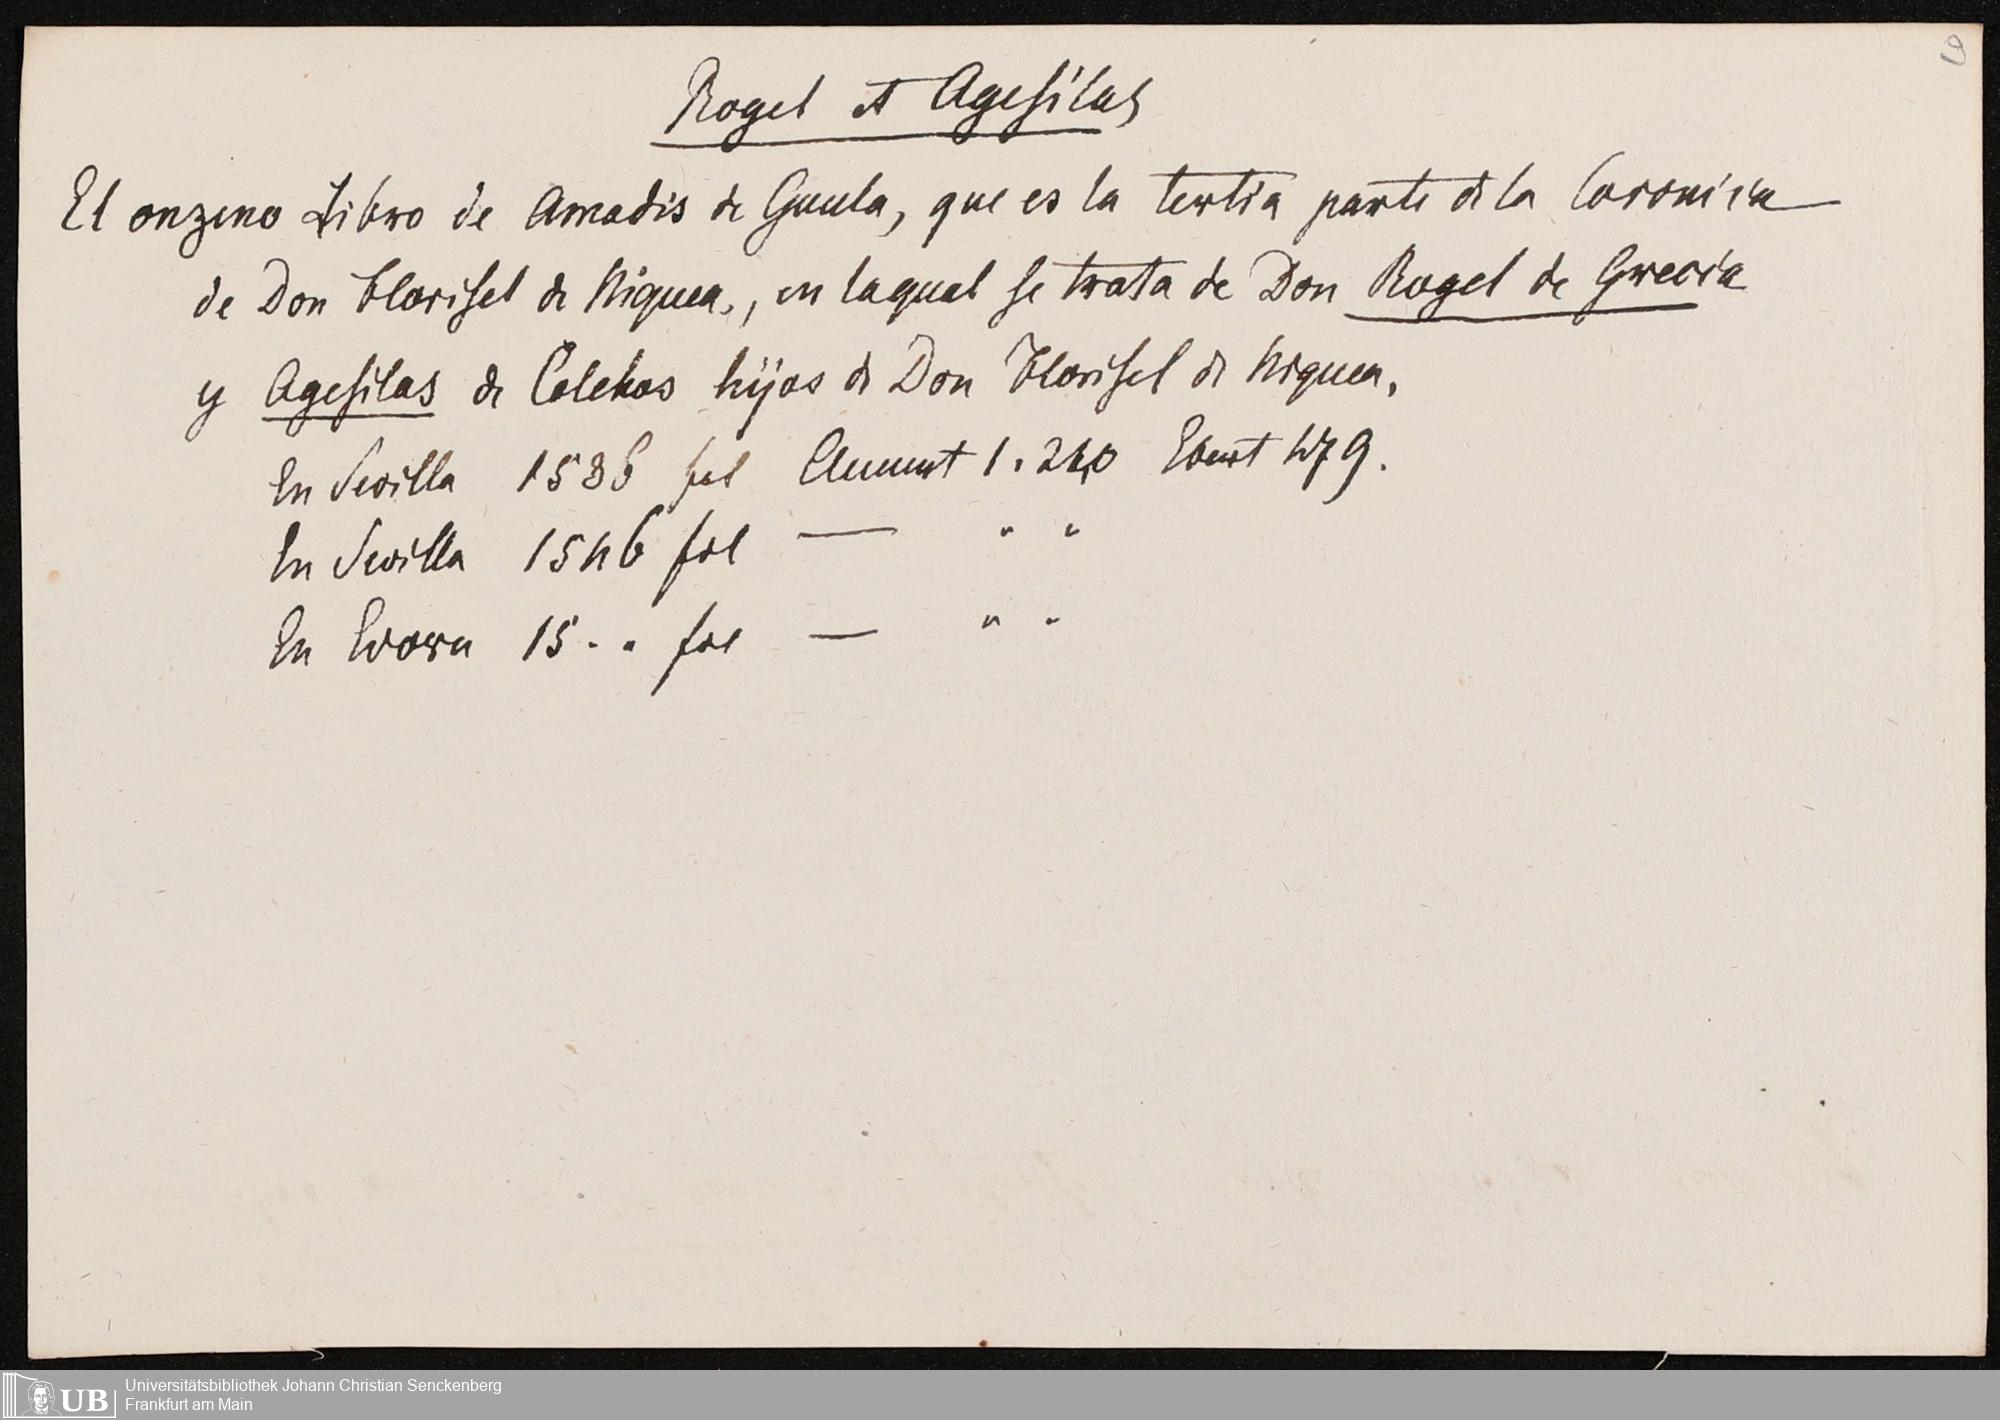 9
Rogel et Agesilas
El onzeno Libro de Amadis de Gaula, que es la tertia parte de la Coronica
de Don Florisel de Niquea, en laqual se trata de Don Rogel de Grecia
y Agesilas de Colchos hijos de Don Florisel de Niquea.
En Sevilla 1536 fol Clement 1. 240 Ebert 479.
En Sevilla 1546 fol — " "
En Evora 15 . . fol — " "
UB
Universitätsbibliothek Johann Christian Senckenberg
Frankfurt am Main